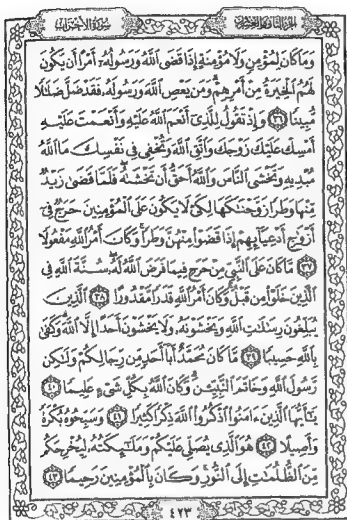 سورة الأحزاب
الجزء الثاني والعشرون
وَمَا كَانَ لِمُؤْمِنٍ وَلَا مُؤْمِنَةٍ إِذَا قَضَى ٱللَّهُ وَرَسُولُهُۥٓ أَمْرًا أَن يَكُونَ
لَهُمُ ٱلْخِيَرَةُ مِنْ أَمْرِهِمْ ۗ وَمَن يَعْصِ ٱللَّهَ وَرَسُولَهُۥ فَقَدْ ضَلَّ ضَلَـٰلًا
مُّبِينًا ٣٦ وَإِذْ تَقُولُ لِلَّذِىٓ أَنْعَمَ ٱللَّهُ عَلَيْهِ وَأَنْعَمْتَ عَلَيْهِ
أَمْسِكْ عَلَيْكَ زَوْجَكَ وَٱتَّقِ ٱللَّهَ وَتُخْفِى فِى نَفْسِكَ مَا ٱللَّهُ
مُبْدِيهِ وَتَخْشَى ٱلنَّاسَ وَٱللَّهُ أَحَقُّ أَن تَخْشَىٰهُ ۖ فَلَمَّا قَضَىٰ زَيْدٌ
مِّنْهَا وَطَرًا زَوَّجْنَـٰكَهَا لِكَىْ لَا يَكُونَ عَلَى ٱلْمُؤْمِنِينَ حَرَجٌ فِىٓ
أَزْوَٰجِ أَدْعِيَآئِهِمْ إِذَا قَضَوْا۟ مِنْهُنَّ وَطَرًا ۚ وَكَانَ أَمْرُ ٱللَّهِ مَفْعُولًا
٣٧ مَّا كَانَ عَلَى ٱلنَّبِىِّ مِنْ حَرَجٍ فِيمَا فَرَضَ ٱللَّهُ لَهُۥ ۖ سُنَّةَ ٱللَّهِ فِى
ٱلَّذِينَ خَلَوْا۟ مِن قَبْلُ ۚ وَكَانَ أَمْرُ ٱللَّهِ قَدَرًا مَّقْدُورًا ٣٨ ٱلَّذِينَ
يُبَلِّغُونَ رِسَـٰلَـٰتِ ٱللَّهِ وَيَخْشَوْنَهُۥ وَلَا يَخْشَوْنَ أَحَدًا إِلَّا ٱللَّهَ ۗ وَكَفَىٰ
بِٱللَّهِ حَسِيبًا ٣٩ مَّا كَانَ مُحَمَّدٌ أَبَآ أَحَدٍ مِّن رِّجَالِكُمْ وَلَـٰكِن
رَّسُولَ ٱللَّهِ وَخَاتَمَ ٱلنَّبِيِّـۧنَ ۗ وَكَانَ ٱللَّهُ بِكُلِّ شَىْءٍ عَلِيمًا ٤٠
يَـٰٓأَيُّهَا ٱلَّذِينَ ءَامَنُوا۟ ٱذْكُرُوا۟ ٱللَّهَ ذِكْرًا كَثِيرًا ٤١ وَسَبِّحُوهُ بُكْرَةً
وَأَصِيلًا ٤٢ هُوَ ٱلَّذِى يُصَلِّى عَلَيْكُمْ وَمَلَـٰٓئِكَتُهُۥ لِيُخْرِجَكُم
مِّنَ ٱلظُّلُمَـٰتِ إِلَى ٱلنُّورِ ۚ وَكَانَ بِٱلْمُؤْمِنِينَ رَحِيمًا ٤٣
٤٢٣